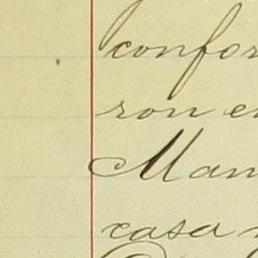 confor
ron en
Man
casa